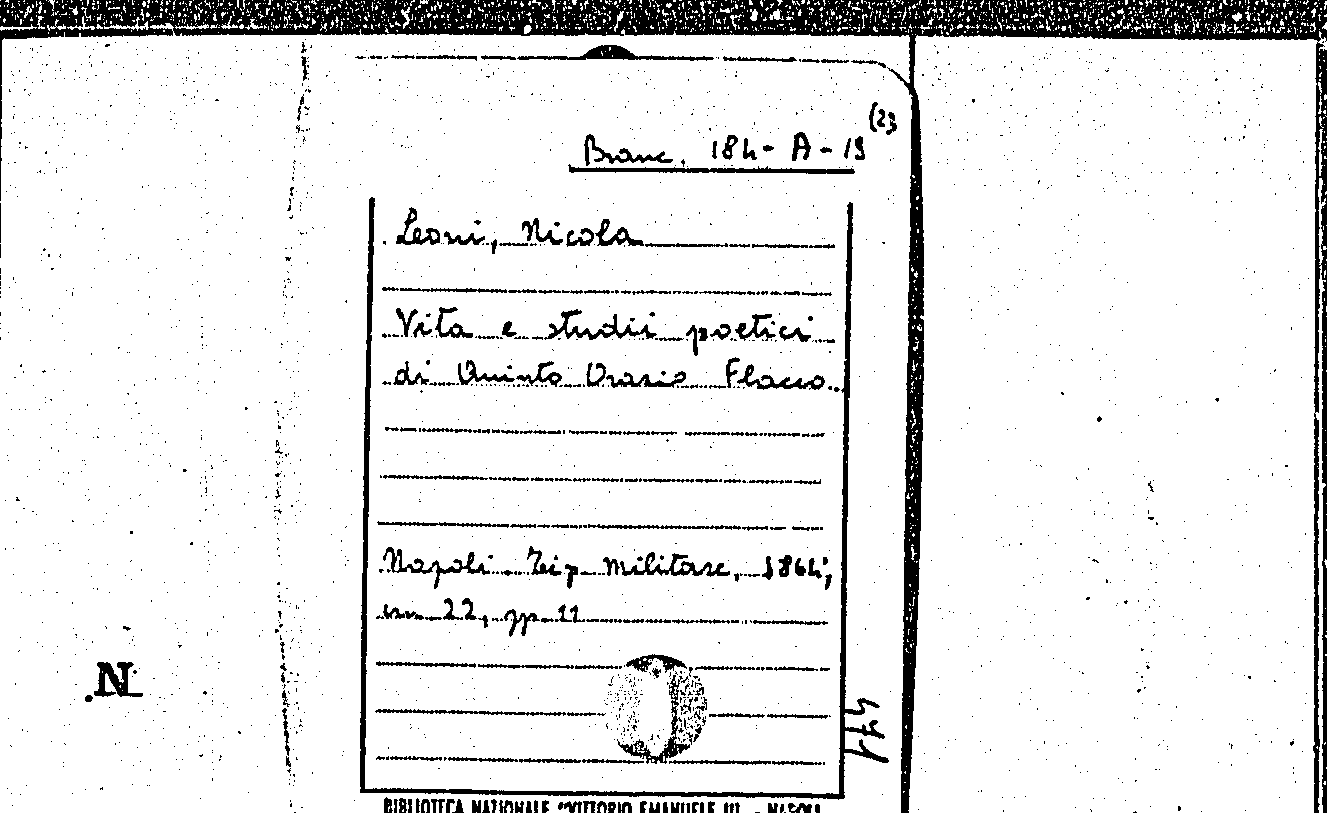 Branc. 184-A-19 (23
Leoni, Nicola
Vita e studii poetici
di Quinto Orazio Flacco.
Napoli. Tip. militare, 1864;
cm 22, pp 11
N
BIBLIOTECA NAZIONALE "VITTORIO EMANUELE III" - NAPOLI